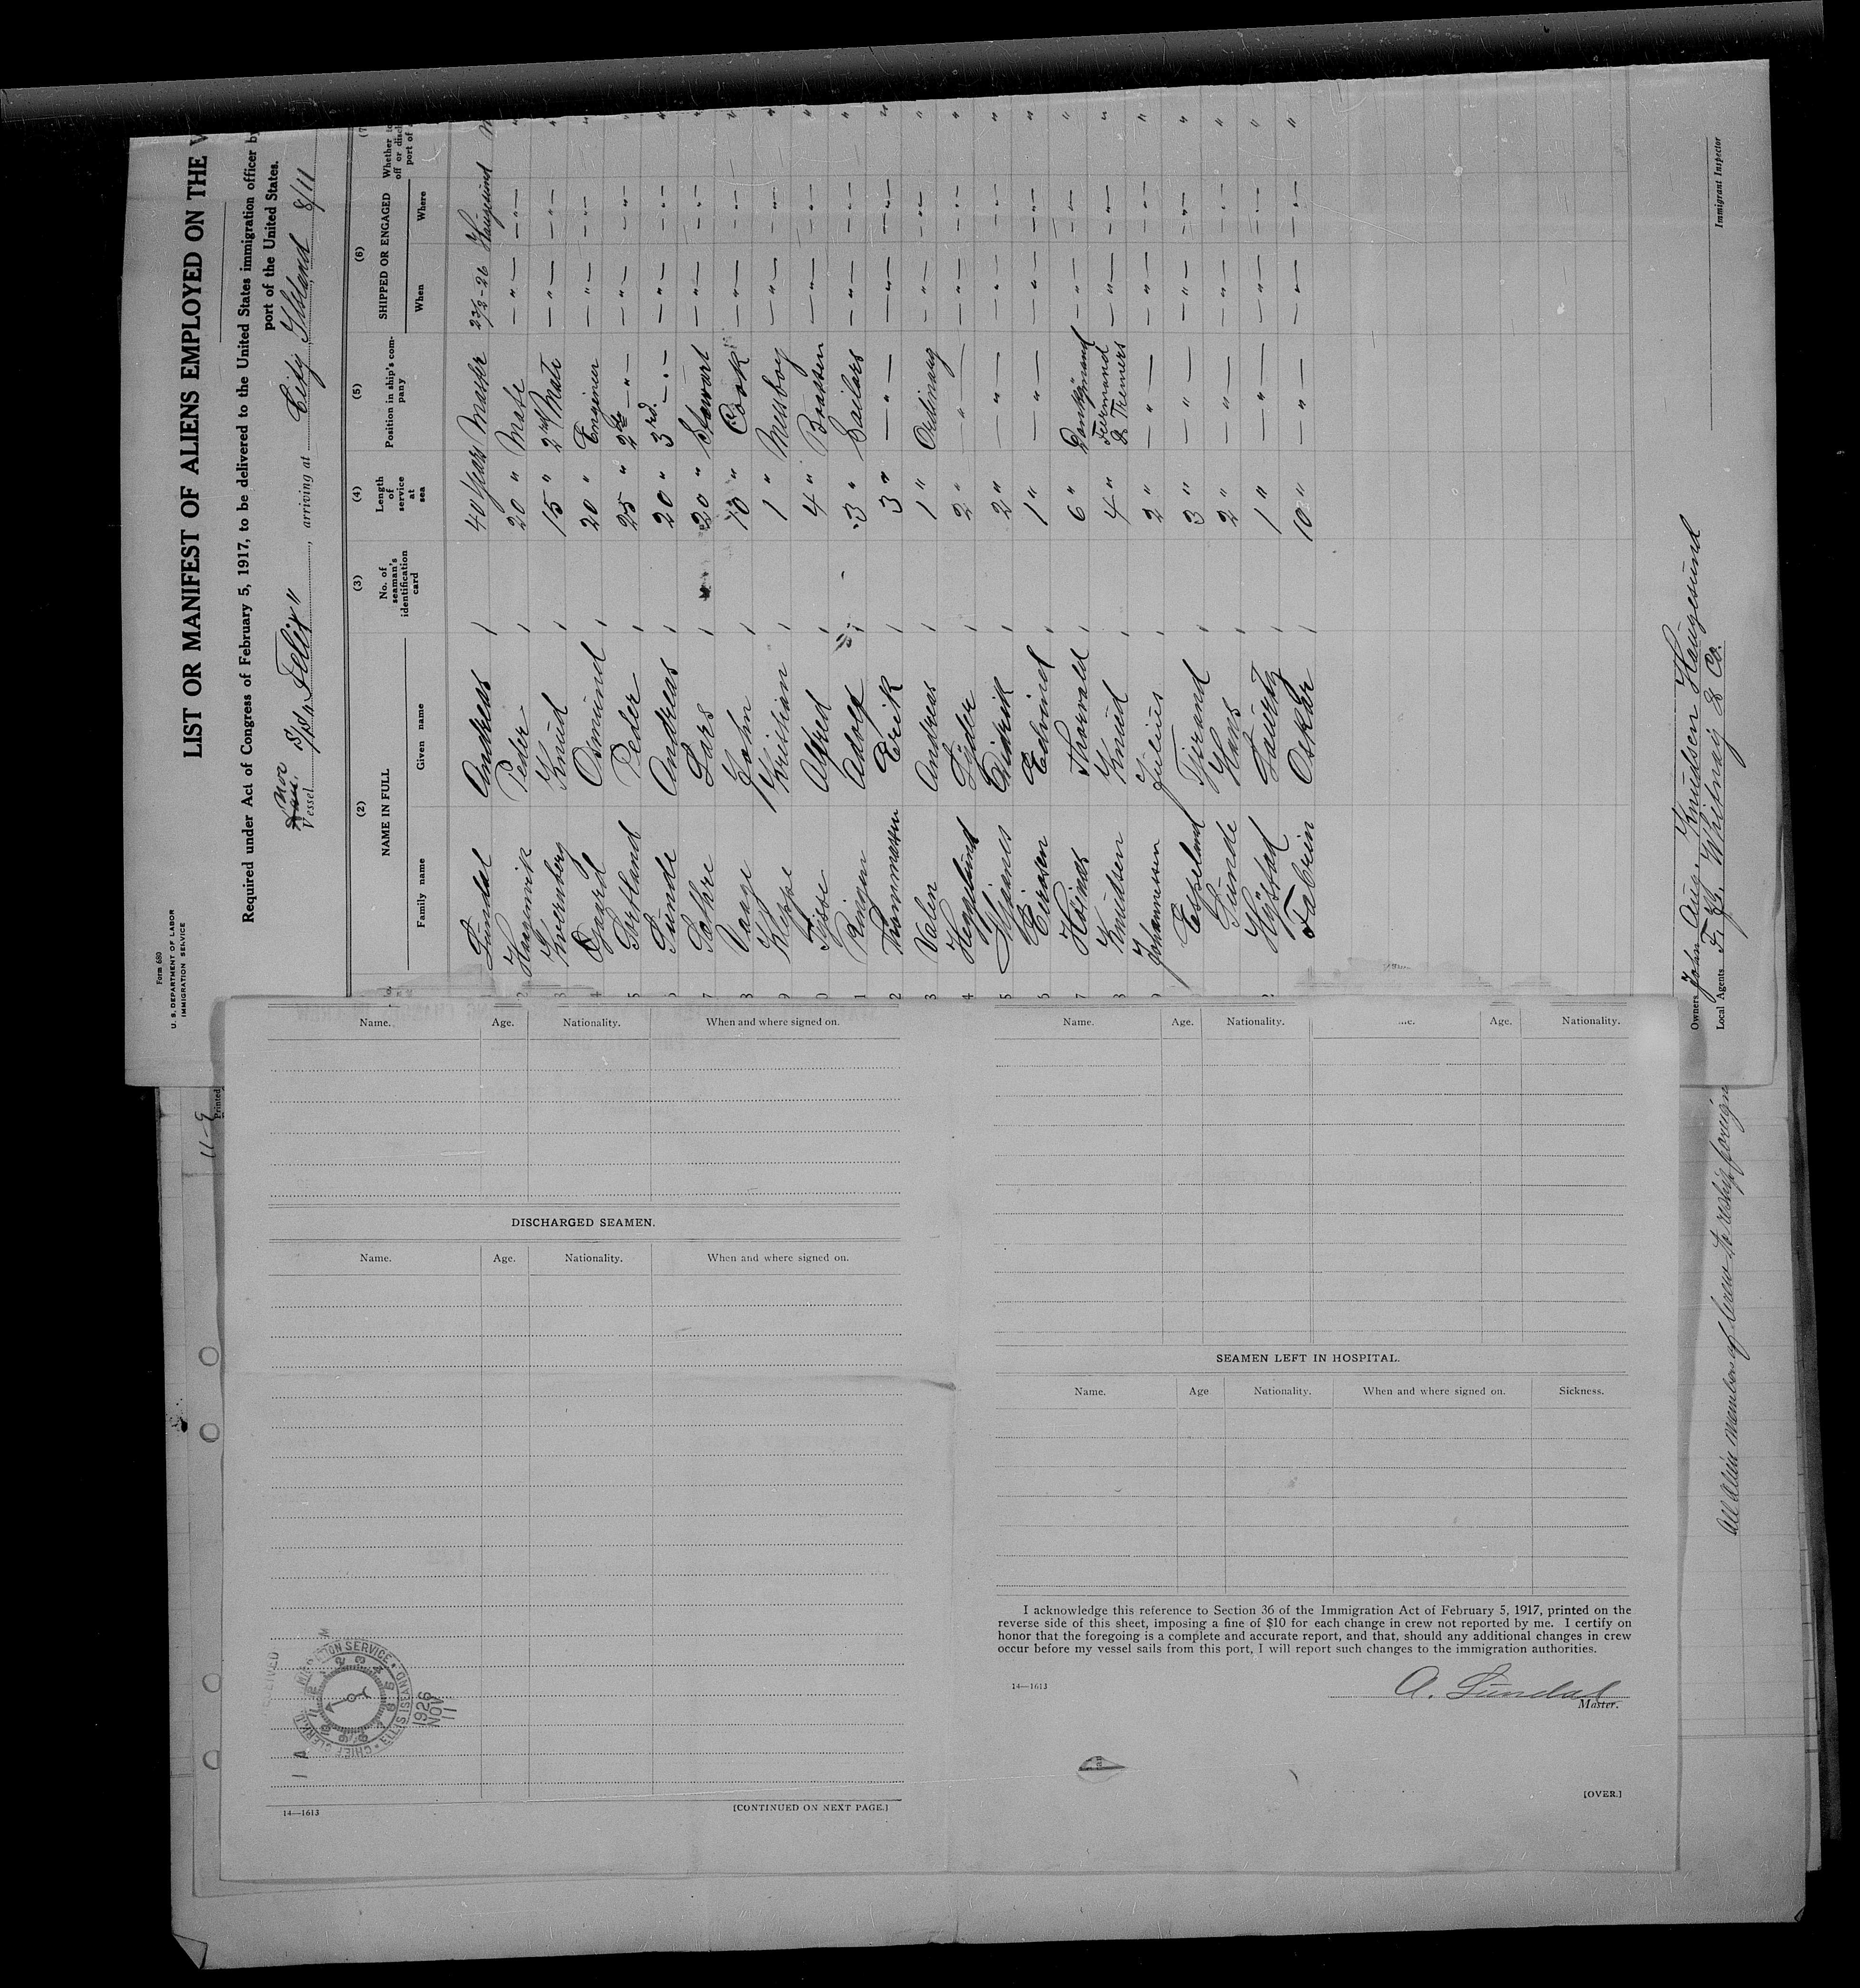 Form 680
U. S. DEPARTMENT OF LABOR
IMMIGRATION SERVICE
LIST OR MANIFEST OF ALIENS EMPLOYED ON THE V
Required under Act of Congress of February 5, 1917, to be delivered to the United States immigration officer by
port of the United States.
Nor
Vessel S/S "Felix", arriving at City Island 8/11
(2) (3) (4) (5) (6) (7
NAME IN FULL No. of seaman's identification card Length of service at sea Position in ship's company SHIPPED OR ENGAGED Whether to
off or disch
port of a
Family name Given name When Where
Sundal Andreas 40 Years Master 23/2-26 Haugesund
2 Hammervik Peder 20 " Mate — " — — " —
3 Kvernberg Knud 15 " 2nd Mate — " — — " —
4 Osmund 20 " Engineer — " — — " —
5 Sortland Peder 25 " — " — — " — — " —
6 Sunde Andreas 20 " 3rd. — " — — " — — " —
7 Sothre Lars 20 " Stewart — " — — " —
8 Vaage John 10 " Cook — " — — " —
9 Kristian 1 " Messboy — " — — " —
0 Alfred 4 " — " — — " —
1 Ringen Adolf 3 " Sailors — " — — " —
2 Thommassen Erik 3 " — " — — " — — " —
3 Valen Andreas 1 " Ordinary — " — — " —
4 Hegglund 2 " — " — — " — — " —
5 Didrik 2 " — " — — " — — " —
6 Eiersen Edvind 1 " — " — — " — — " —
7 Höines Thorvald 6 " Donkeymand — " — — " —
8 Knudsen Knud 4 " Feermand & Tremers — " — — " —
9 Johannessen Julius 2 " — " — — " — — " —
Espeland 3 " — " — — " — — " —
Sunde Hans 2 " — " — — " — — " —
2 1 " — " — — " — — " —
Fabrin Oskar 10 " — " — — " — — " —
Owners John Aug. Knudsen Haugesund
Local Agents F. H. Whitney & Co.
Immigrant Inspector
11-9
Printed
All alien members of crew to reship foreign
Name. Age. Nationality. When and where signed on.
DISCHARGED SEAMEN.
Name. Age. Nationality. When and where signed on.
RECEIVED
IMMIGRATION SERVICE · ELLIS ISLAND ·
CHIEF CLERK
1926
NOV
11
14—1613
[CONTINUED ON NEXT PAGE.]
Name. Age. Nationality. Age. Nationality.
SEAMEN LEFT IN HOSPITAL.
Name. Age Nationality. When and where signed on. Sickness.
I acknowledge this reference to Section 36 of the Immigration Act of February 5, 1917, printed on the
reverse side of this sheet, imposing a fine of $10 for each change in crew not reported by me. I certify on
honor that the foregoing is a complete and accurate report, and that, should any additional changes in crew
occur before my vessel sails from this port, I will report such changes to the immigration authorities.
14—1613
A. Sundal
Master.
[OVER.]